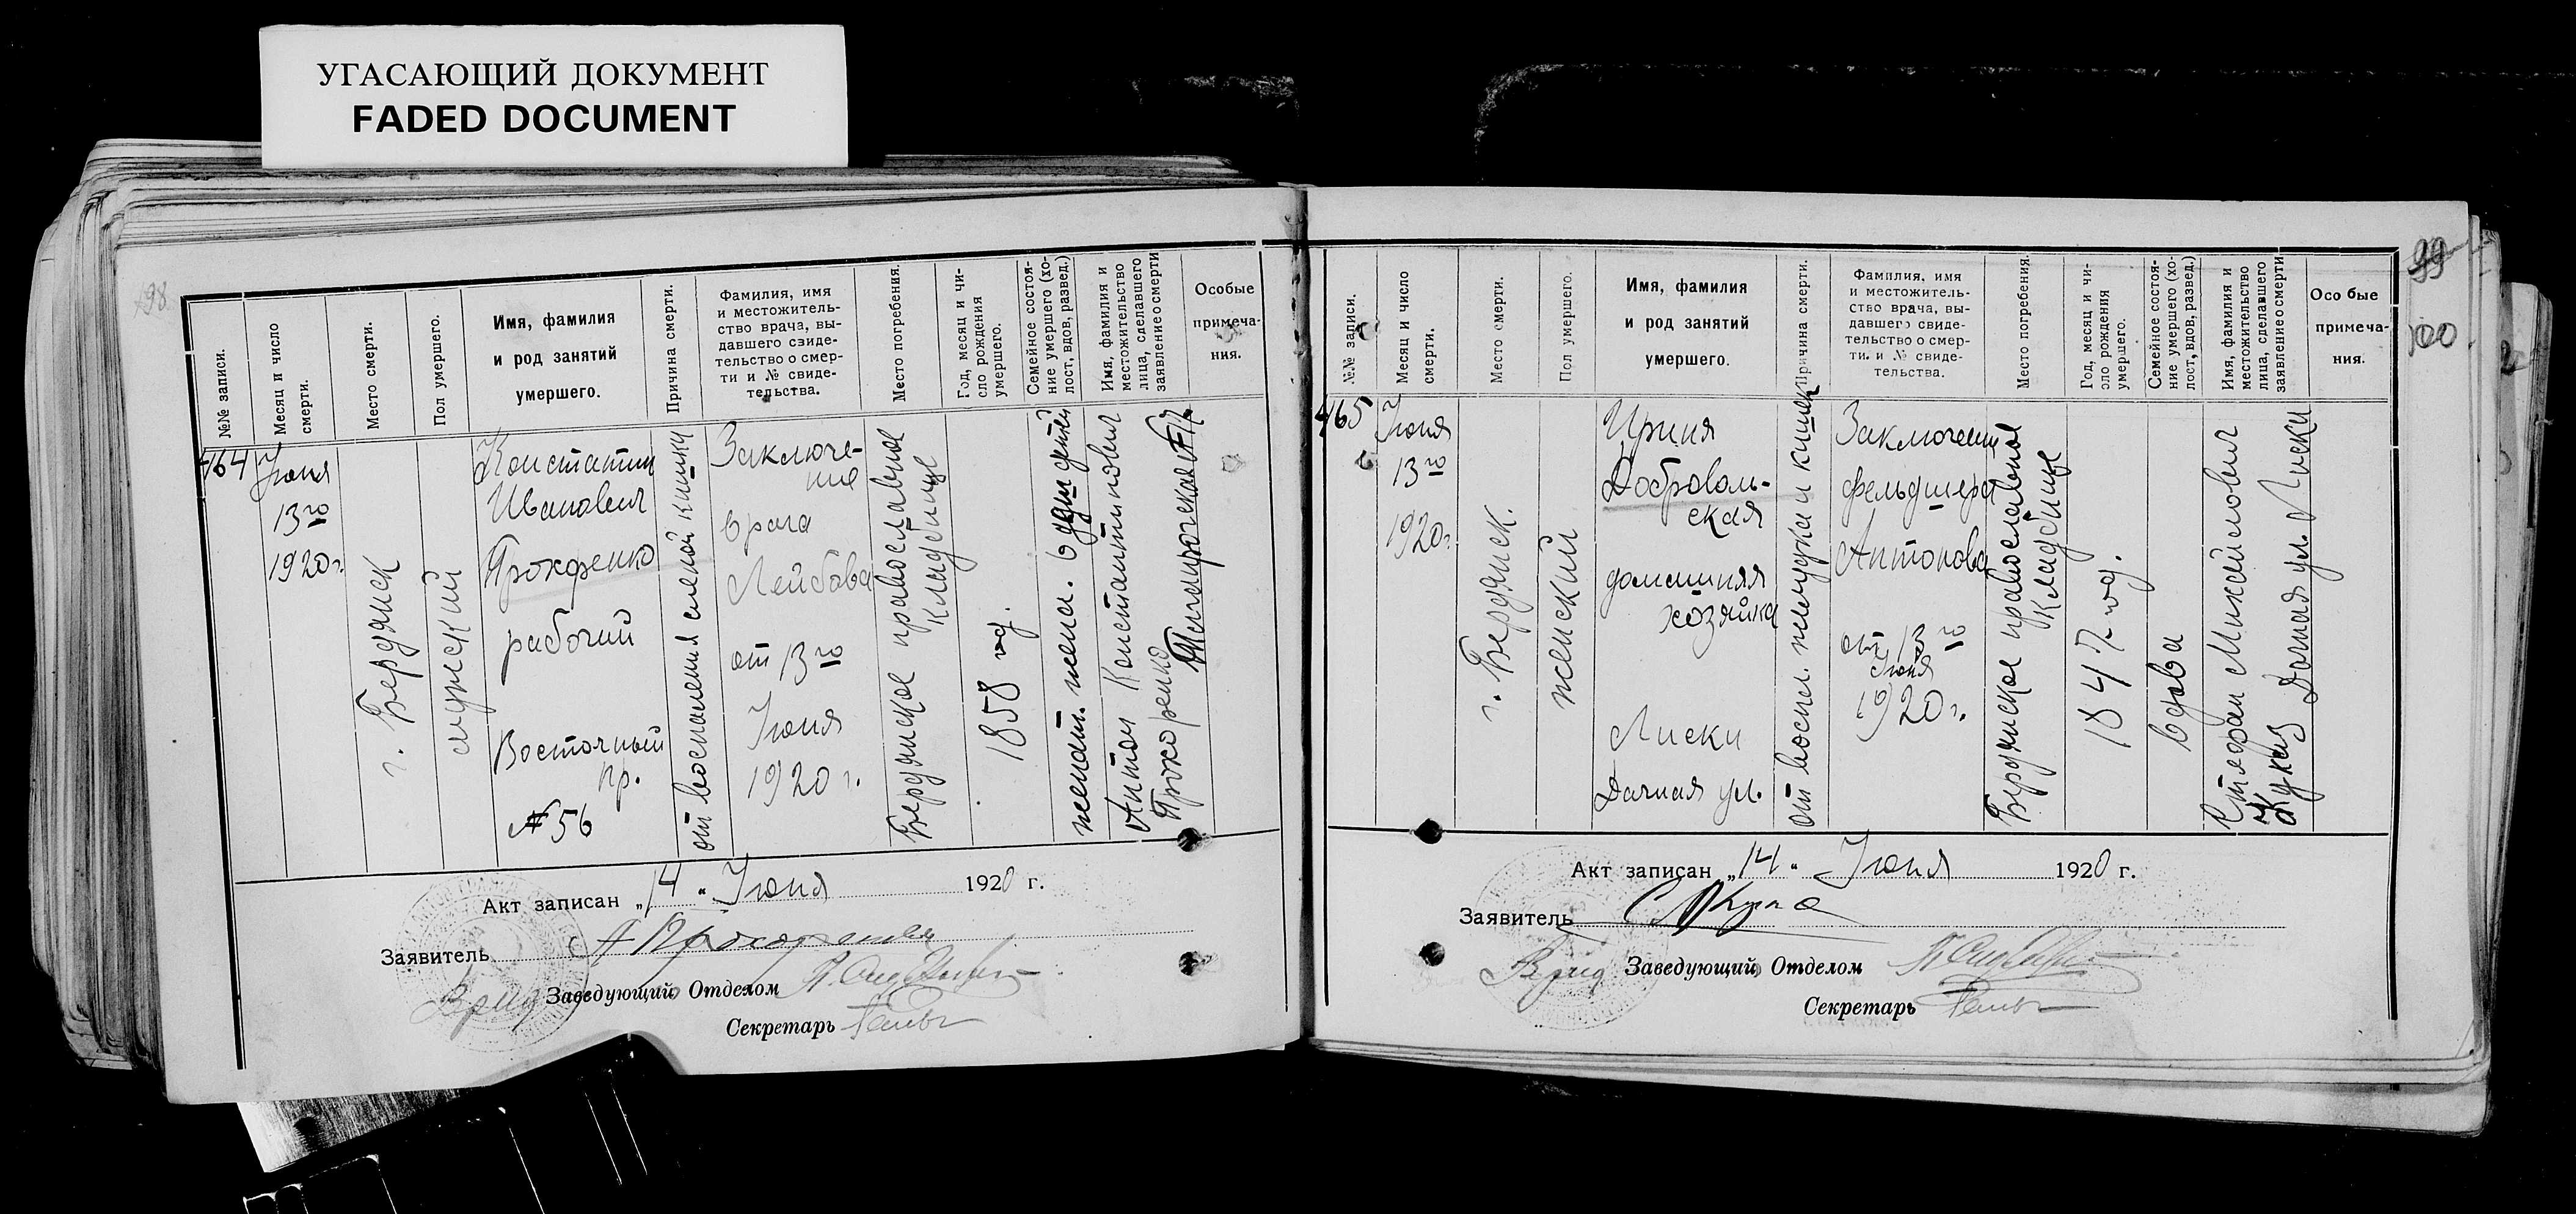 УГАСАЮЩИЙ ДОКУМЕНТ
FADED DOCUMENT
98.
№№ записи.
Месяц и число
смерти.
Место смерти.
Пол умершего.
Имя, фамилия
и род занятий
умершего.
Причина смерти.
Фамилия, имя
и местожитель-
ство врача, вы-
давшего свиде-
тельство о смер-
ти и № свиде-
тельства.
Место погребения.
Год, месяц и чи-
сло рождения
умершего.
Семейное состоя-
ние умершего (хо-
лост, вдов, развед.)
Имя, фамилия и
местожительство
лица, сделавшего
заявление о смерти
Особые
примеча-
ния.
464
Июня
13го
1920г.
г. Бердянск
мужский
Константин
Иванович
Прокофенко
рабочий
Восточный
пр.
№ 56
от воспаления слепой кишки
Заключе-
ние
врача
Лейбова
от 13го
Июня
1920 г.
Бердянское православное
кладбище
1858 год.
женат. жена. 6 душ детей
Антон Константинович
Прокофенко
Акт записан „14 „ Июня 1920 г.
Заявитель
Врид Заведующий Отделом
Секретарь
99
100
№№ записи.
Месяц и число
смерти.
Место смерти.
Пол умершего.
Имя, фамилия
и род занятий
умершего.
Причина смерти.
Фамилия, имя
и местожитель-
ство врача, вы-
давшего свиде-
тельство о смер-
ти и № свиде-
тельства.
Место погребения.
Год, месяц и чи-
сло рождения
умершего.
Семейное состоя-
ние умершего (хо-
лост, вдов, развед.)
Имя, фамилия и
местожительство
лица, сделавшего
заявление о смерти
Осо бые
примеча-
ния.
465
Июня
13го
1920г.
г. Бердянск.
женский
Ирина
Доброволь-
ская
домашняя
хозяйка
Лиски
Дачная ул.
от воспал. желудка и кишек
Заключение
фельдшера
Антонова
от 13го
Июня
1920 г.
Бердянское православное
кладбище
1847 год.
вдова
Стефан Михайлович
Дачная ул. Лиски
Акт записан „14 „ Июня 1920 г.
Заявитель
Врид Заведующий Отделом
Секретарь